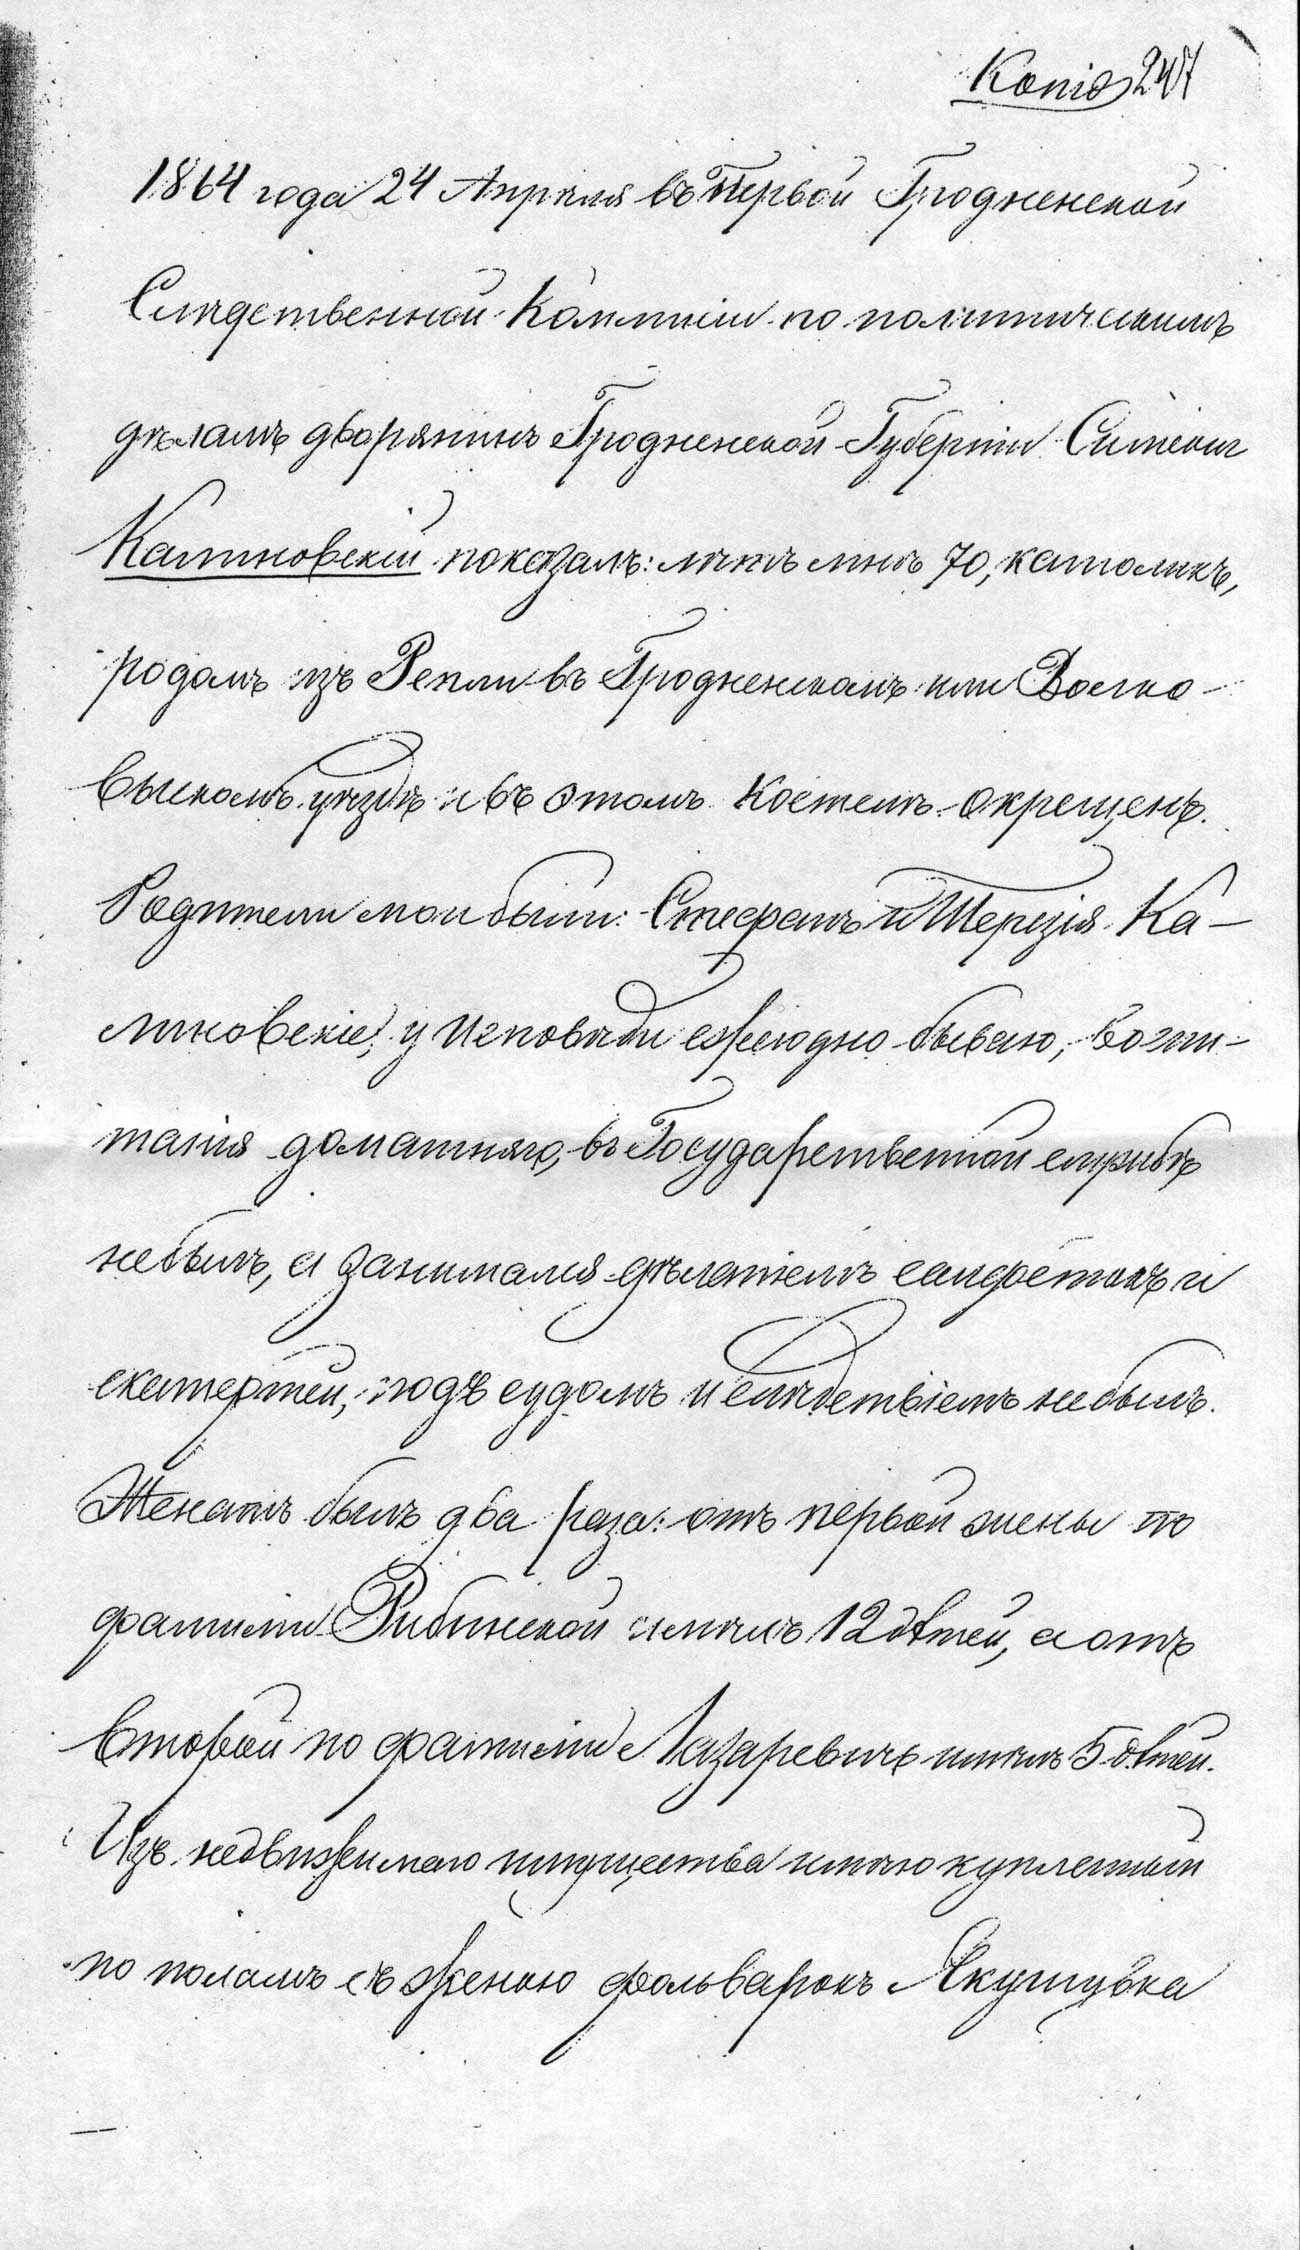 Копія 247
1864 года 24 Апрѣля въ первой Гродненской
Слѣдственной Коммисіи по политическимъ
дѣламъ дворянинъ Гродненской Губерніи Симеон
Калиновскій показалъ: лѣтъ мнѣ 70, католикъ,
родомъ изъ Репли въ Гродненскомъ или Волко-
выскомъ уѣздѣ и въ этомъ костелѣ окрещенъ.
Родители мои были: Стефанъ и Терезія Ка-
линовскіе, у Исповѣди ежегодно бываю, воспи-
танія домашняго, въ Государственной службѣ
не былъ, а занимался дѣланіемъ салфетокъ и
скатертей, подъ судомъ и слѣдствіемъ не былъ.
Женатъ былъ два раза: отъ первой жены по
фамиліи Рибинской имѣлъ 12 дѣтей, а отъ
второй по фамиліи Лазаревичъ имѣлъ 5 дѣтей.
Изъ недвижимаго имущества имѣю купленный
по поламъ съ женою фольварокъ Якушувка